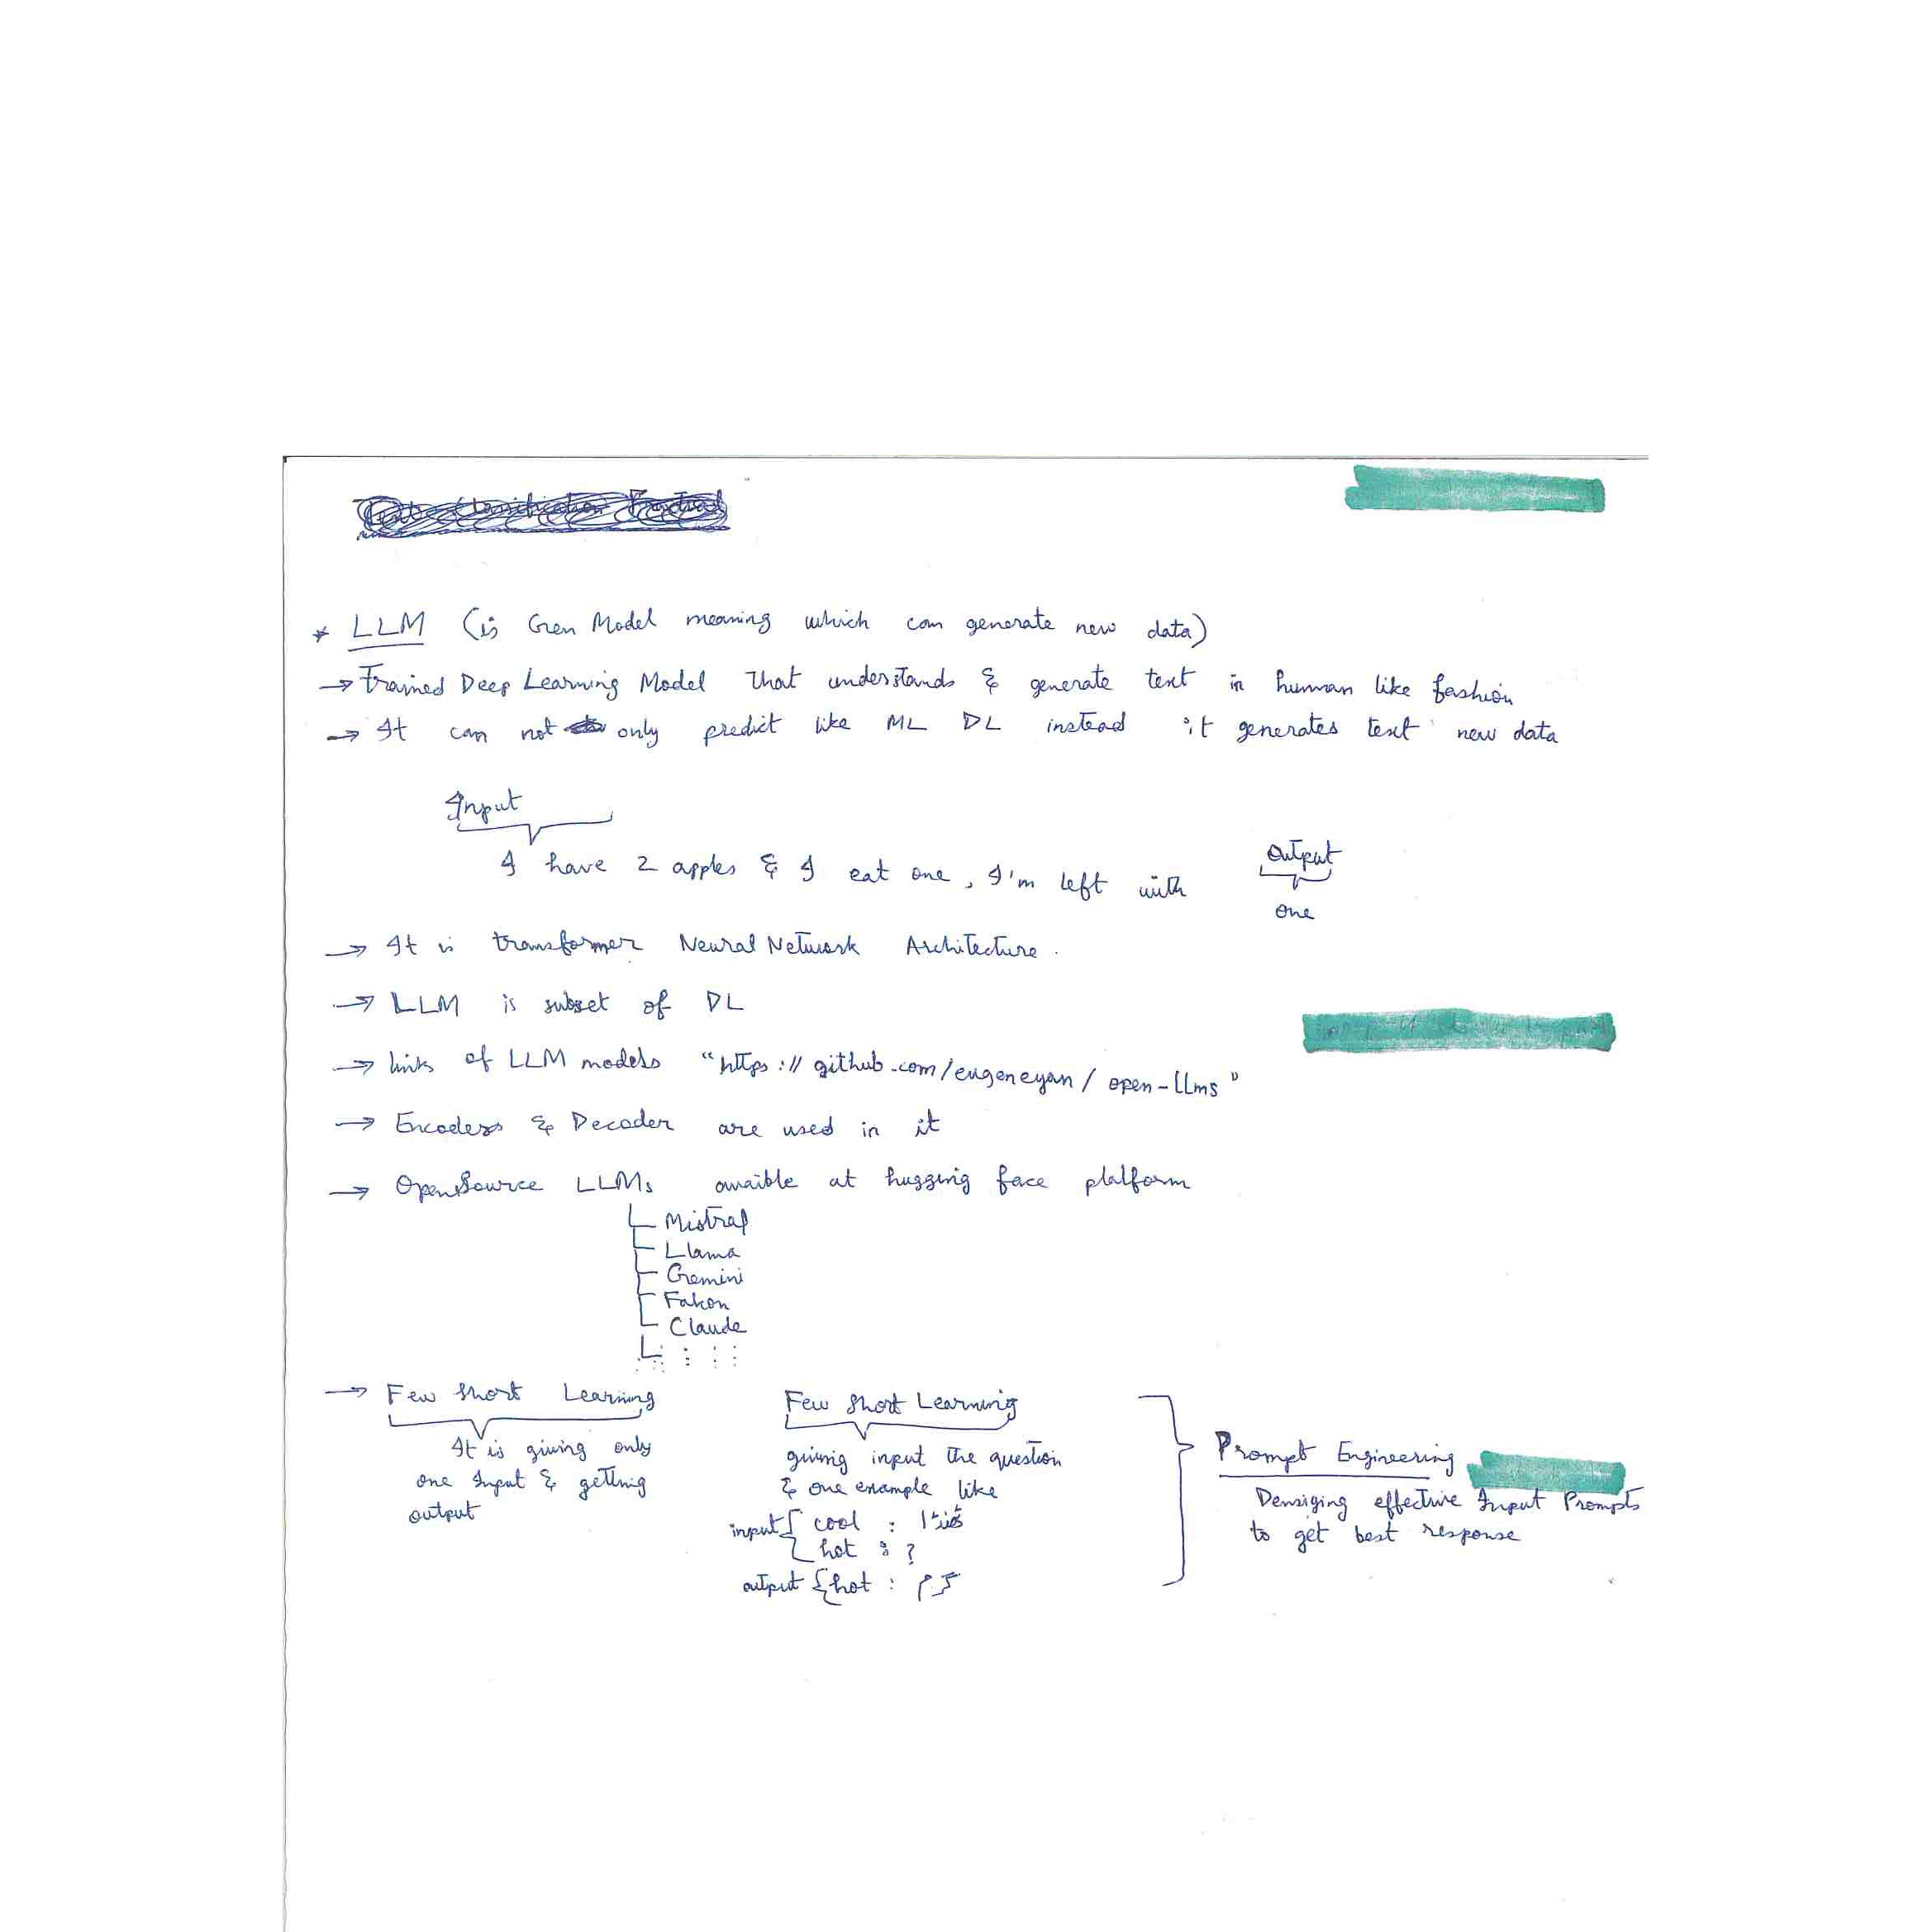 * LLM (is Gen Model meaning which can generate new data)
→ Trained Deep Learning Model that understands & generate text in human like fashion
→ It can not only predict like ML DL instead it generates text new data
Input
I have 2 apples & I eat one, I'm left with
output
one
→ It is transformer Neural Network Architecture.
→ LLM is subset of DL
→ links of LLM models "https://github.com/eugeneyan/open-llms"
→ Encoders & Decoder are used in it
→ OpenSource LLMs avaible at hugging face platform
Mistral
Llama
Gemini
Falcon
Claude
→ Few Short Learning
It is giving only
one Input & getting
output
Few Short Learning
giving input the question
& one example like
input { cool :
hot : ?
output { hot : گرم
Prompt Engineering
Densiging effective Input Prompts
to get best response